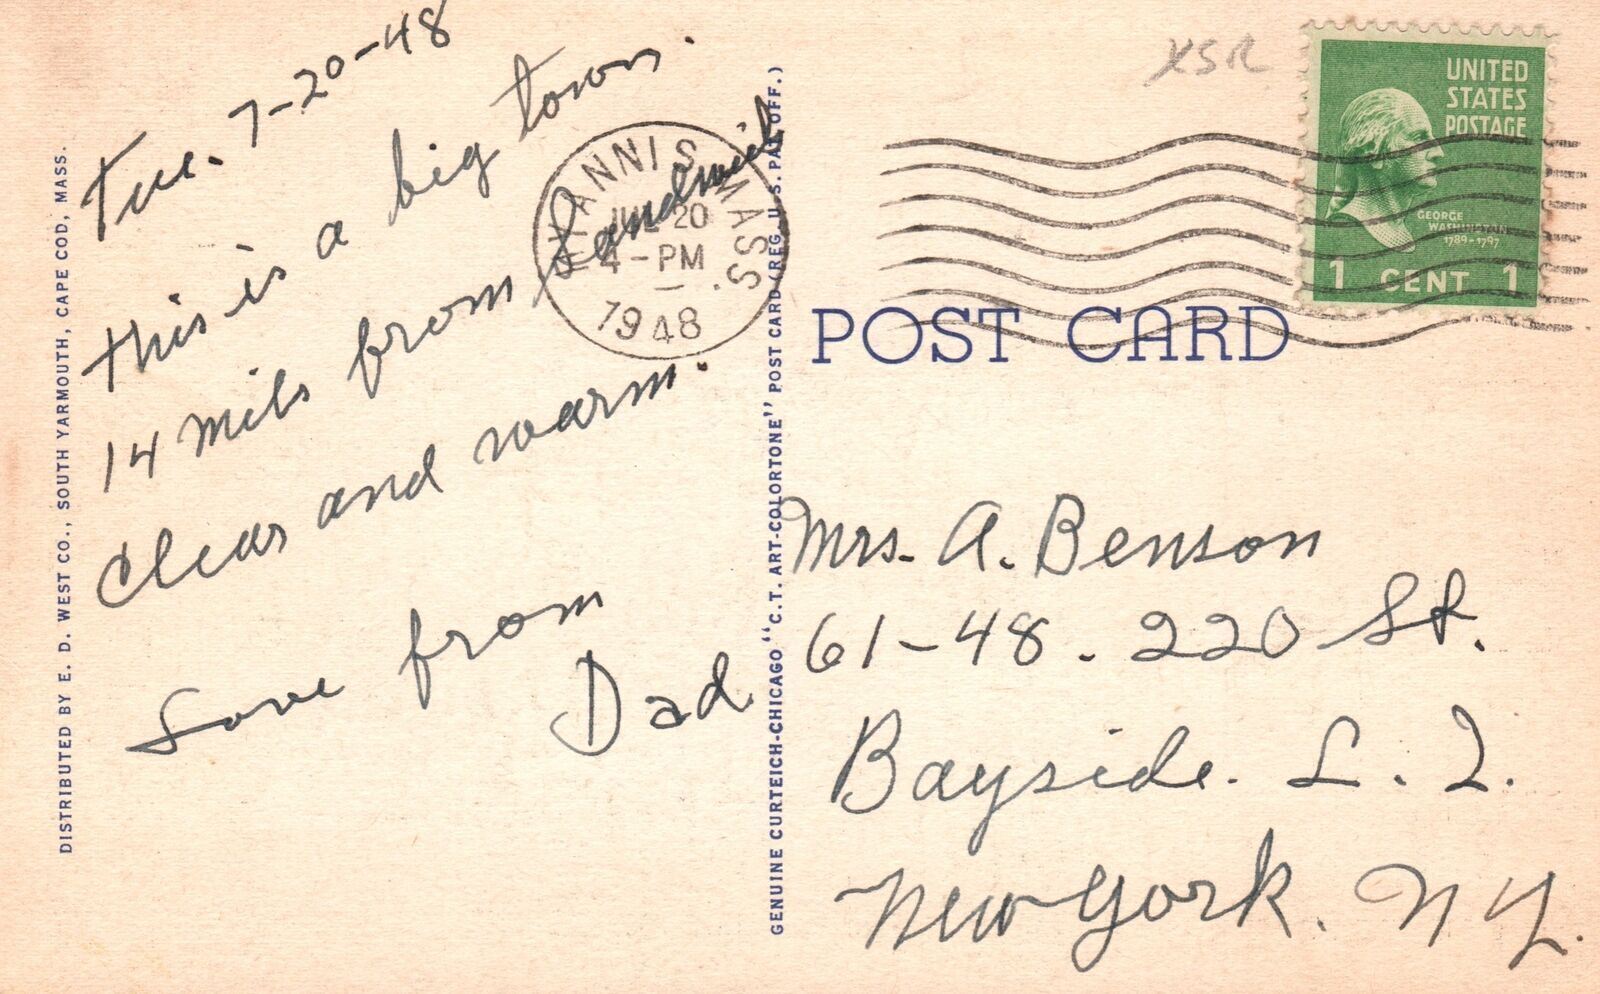 Tue. 7-20-48
This is a big town.
14 mils from Sandwich
Clear and warm.
Love from
Dad
HYANNIS MASS.
JUL 20
4-PM
1948
XSR
UNITED
STATES
POSTAGE
GEORGE
WASHINGTON
1789-1797
1 CENT 1
POST CARD
Mrs. A. Benson
61-48. 220 St.
Bayside. L. I.
New York. N Y.
DISTRIBUTED BY E. D. WEST CO., SOUTH YARMOUTH, CAPE COD, MASS.
GENUINE CURTEICH-CHICAGO "C.T. ART-COLORTONE" POST CARD (REG. U.S. PAT. OFF.)